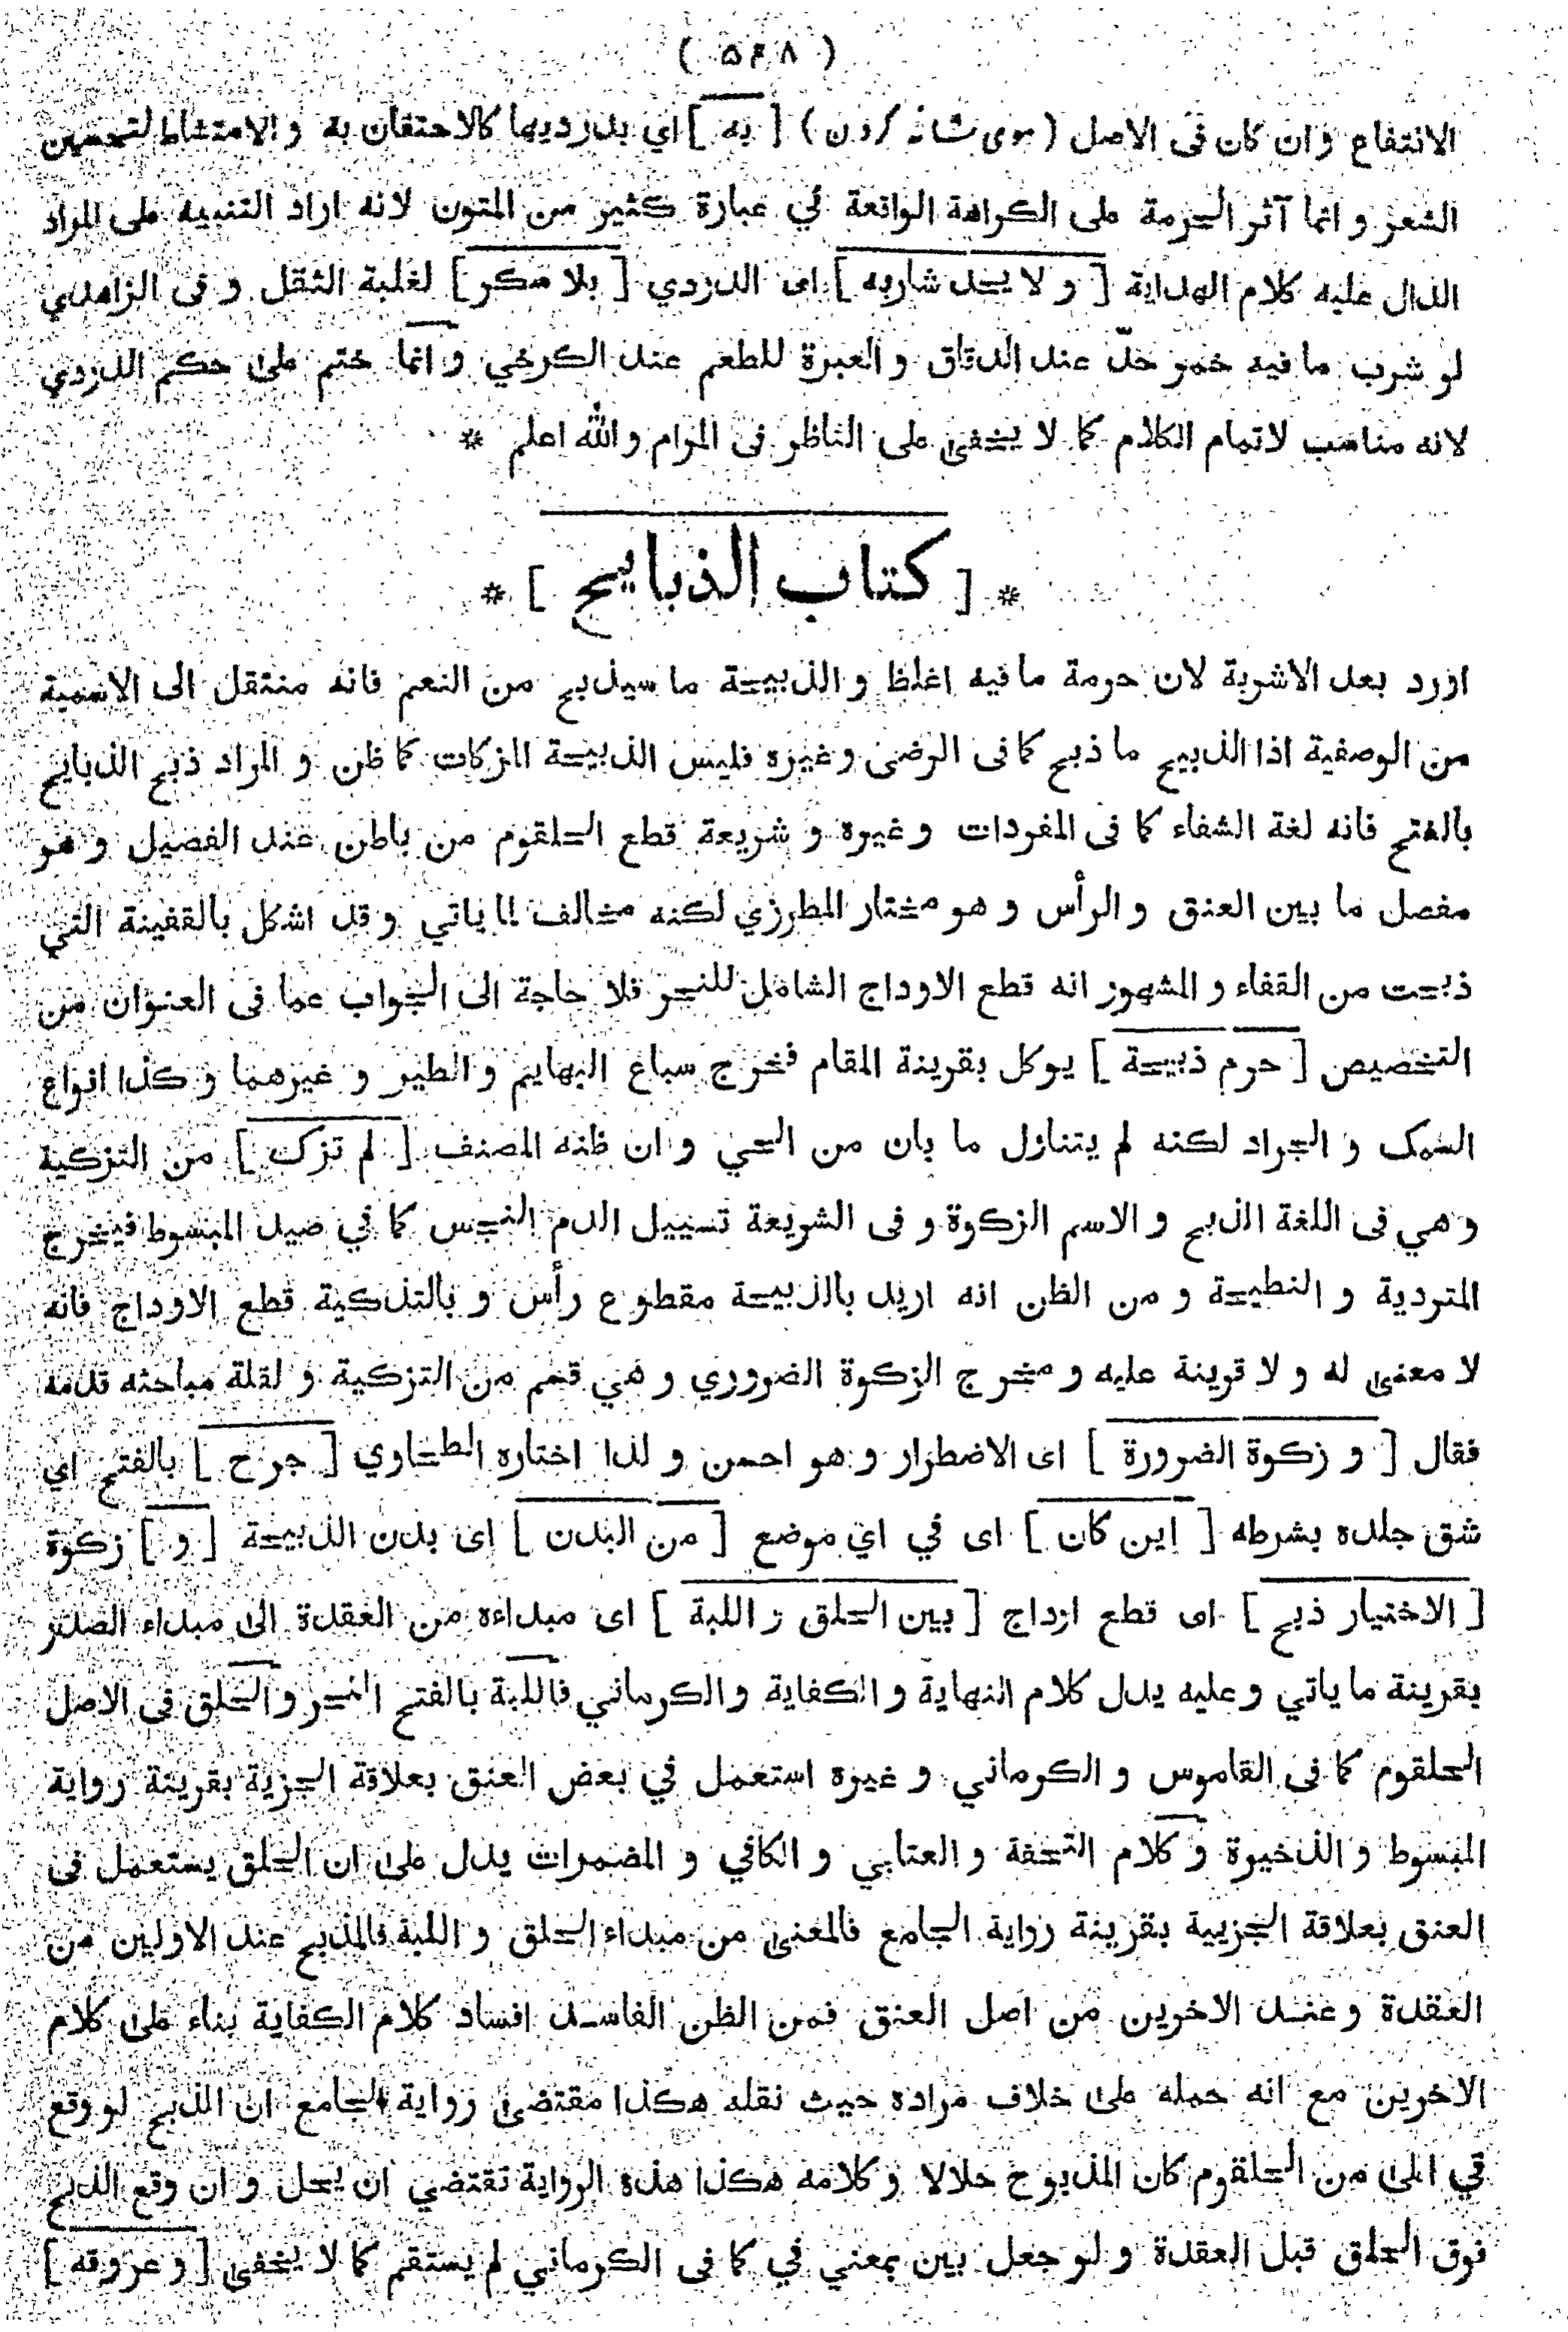 ( ۵۴۸ )
الانتفاع وان كان فى الاصل ( موى شانه كردن ) [ به ] اي بدرديها كالاحتقان به و الامتشاط لتحسين
الشعر و انما آثر الحرمة على الكراهة الواقعة في عبارة كثير من المتون لانه اراد التنبيه على المراد
الدال عليه كلام الهداية [ و لا يحد شاربه ] اى الدردي [ بلا سكر ] لغلبة الثقل و فى الزاهدي
لو شرب ما فيه خمر حدّ عند الدقاق و العبرة للطعم عند الكرخي و انما ختم على حكم الدردي
لانه مناسب لاتمام الكلام كما لا يخفى على الناظر فى المرام و الله اعلم *
* [ كتاب الذبايح ] *
اورد بعد الاشربة لان حرمة ما فيه اغلظ و الذبيحة ما سيذبح من النعم فانه منتقل الى الاسمية
من الوصفية اذا الذبيح ما ذبح كما فى الرضى و غيره فليس الذبيحة المزكات كما ظن و المراد ذبح الذبايح
بالفتح فانه لغة الشفاء كما فى المفردات و غيره و شريعة قطع الحلقوم من باطن عند الفصيل و هو
مفصل ما بين العنق و الرأس و هو مختار المطرزي لكنه مخالف لما ياتي و قد اشكل بالقفينة التي
ذبحت من القفاء و المشهور انه قطع الاوداج الشامل للنحر فلا حاجة الى الجواب عما فى العنوان من
التخصيص [ حرم ذبيحة ] يوكل بقرينة المقام فخرج سباع البهايم و الطير و غيرهما و كذا انواع
السمك و الجراد لكنه لم يتناول ما بان من الحي و ان ظنه المصنف [ لم تزك ] من التزكية
و هي فى اللغة الذبح و الاسم الزكوة و فى الشريعة تسييل الدم النجس كما في صيد المبسوط فيخرج
المتردية و النطيحة و من الظن انه اريد بالذبيحة مقطوع رأس و بالتذكية قطع الاوداج فانه
لا معنى له و لا قرينة عليه و مخرج الزكوة الضروري و هي قسم من التزكية و لقلة مباحثه قدمه
فقال [ و زكوة الضرورة ] اى الاضطرار و هو احسن و لذا اختاره الطحاوي [ جرح ] بالفتح اي
شق جلده بشرطه [ اين كان ] اى في اي موضع [ من البدن ] اى بدن الذبيحة [ و ] زكوة
[ الاختيار ذبح ] اى قطع اوداج [ بين الحلق و اللبة ] اى مبداءه من العقدة الى مبداء الصدر
بقرينة ما ياتي و عليه يدل كلام النهاية و الكفاية و الكرماني فاللبة بالفتح النحر و الحلق فى الاصل
الحلقوم كما فى القاموس و الكرماني و غيره استعمل في بعض العنق بعلاقة الجزية بقرينة رواية
المبسوط و الذخيرة و كلام التحفة و العتابي و الكافي و المضمرات يدل على ان الحلق يستعمل فى
العنق بعلاقة الجزيية بقرينة رواية الجامع فالمعنى من مبداء الحلق و اللبة فالمذبح عند الاولين من
العقدة و عند الاخرين من اصل العنق فمن الظن الفاسد افساد كلام الكفاية بناء على كلام
الاخرين مع انه حمله على خلاف مراده حيث نقله هكذا مقتضى رواية الجامع ان الذبح لو وقع
في اعلى من الحلقوم كان المذبوح حلالا و كلامه هكذا هذه الرواية تقتضي ان يحل و ان وقع الذبح
فوق الحلق قبل العقدة و لو جعل بين بمعني في كما فى الكرماني لم يستقم كما لا يخفى [ و عروقه ]